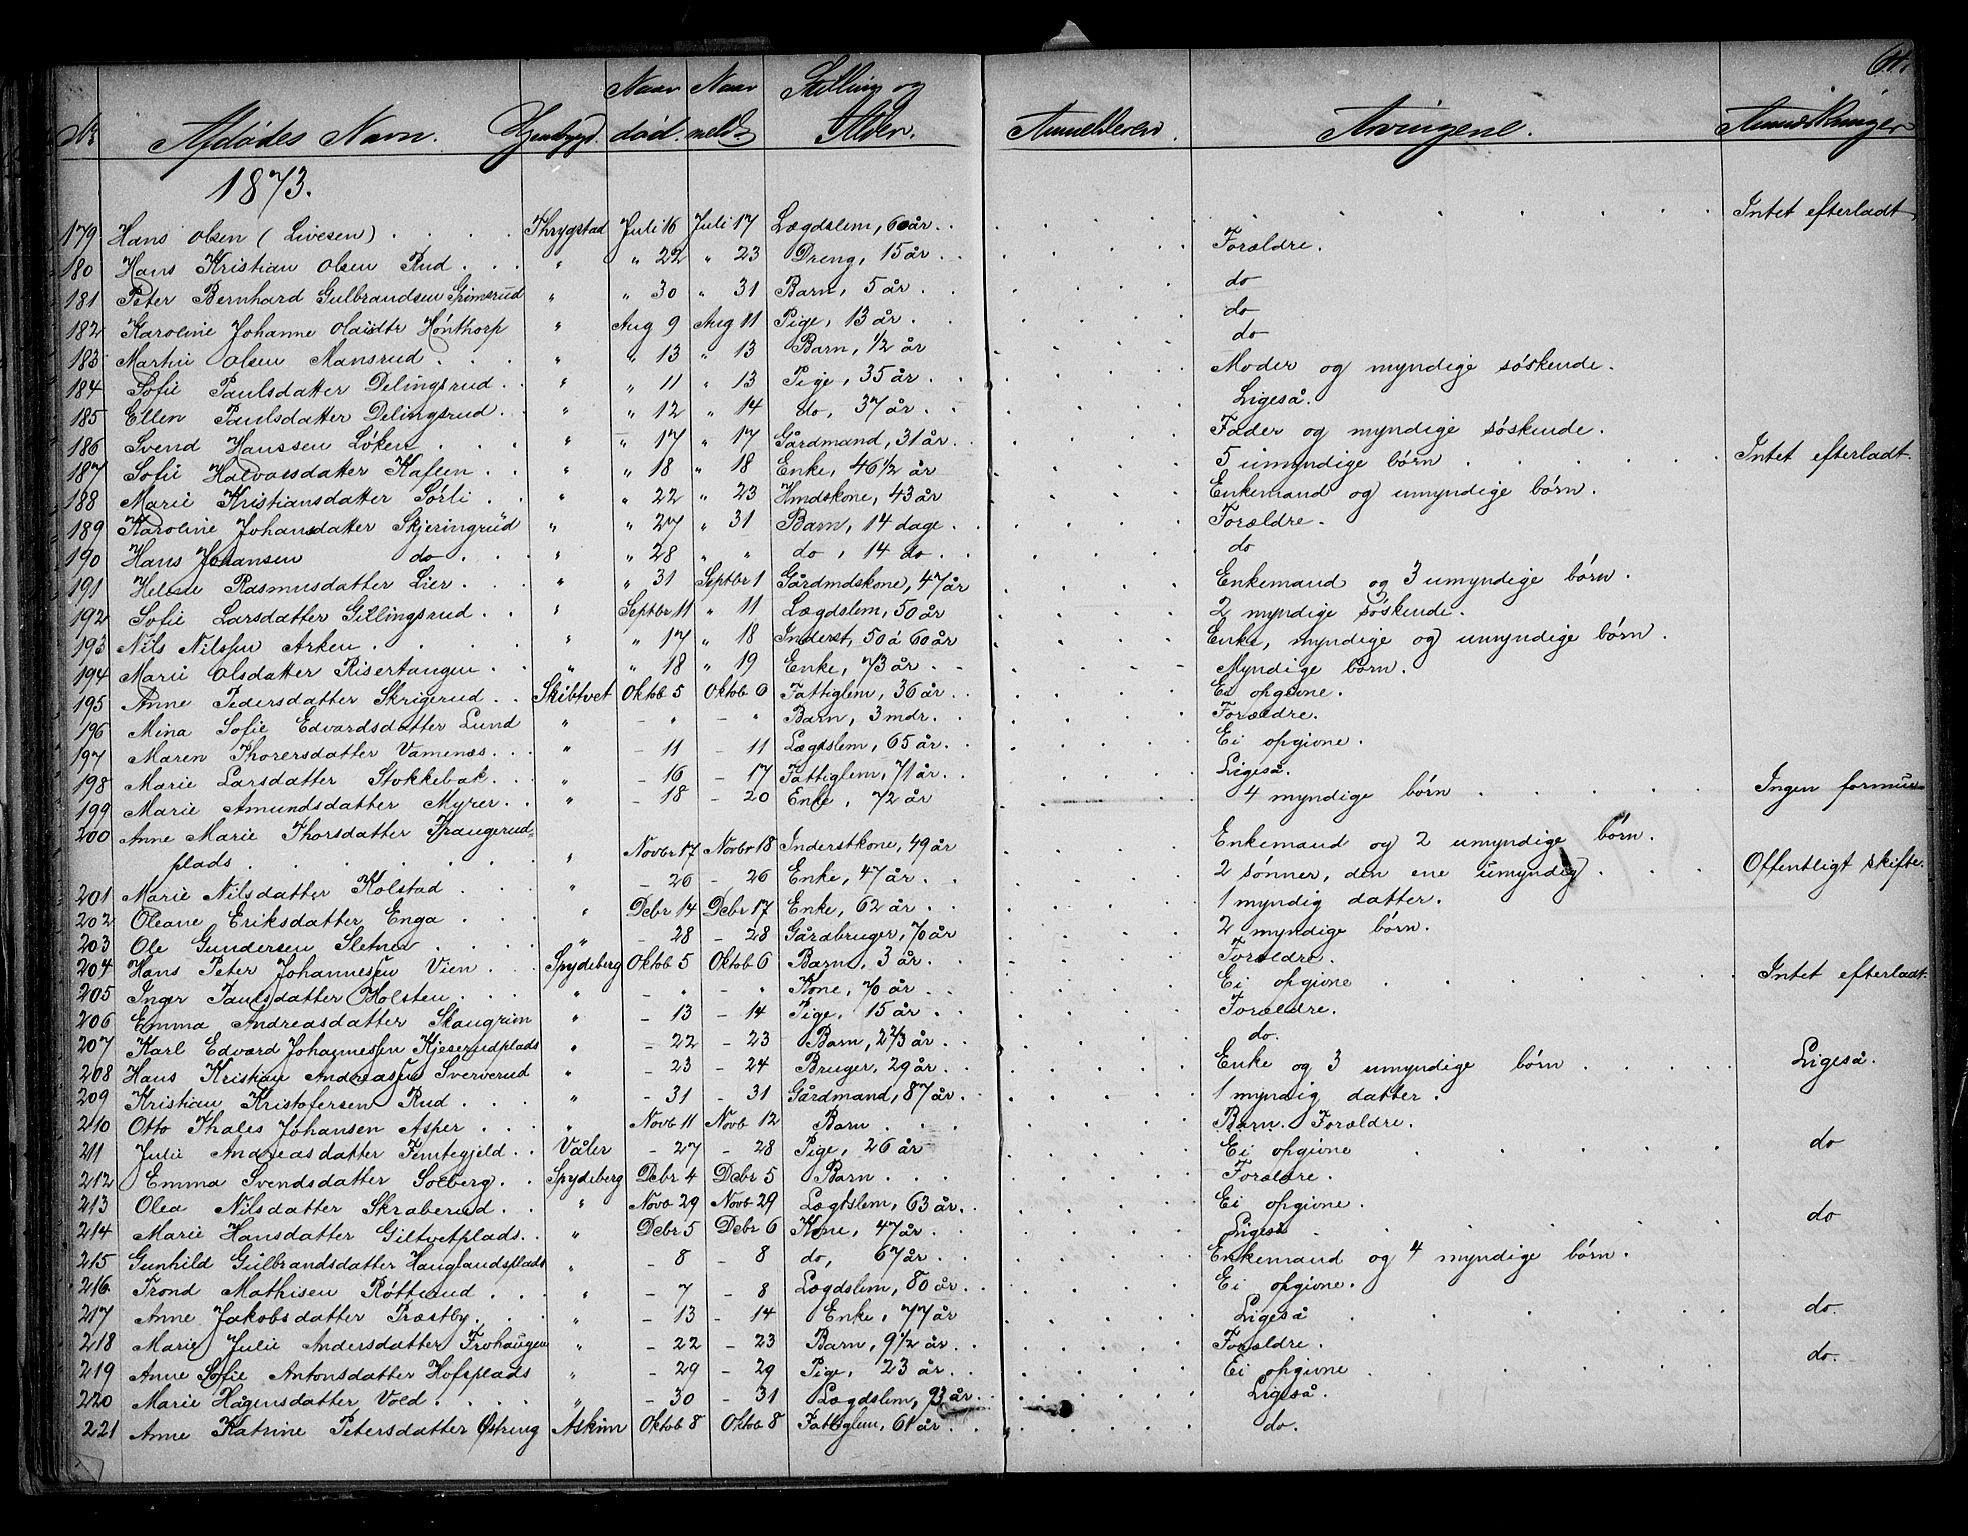 64.
Nr Afdødes Navn. Hjembygd. Naar død. Naar meldt Stilling og Alder. Anmelderen. Arvingene. Anmærkninger
1873.
179 Hans Olsen (Livesen) . . . . Thrygstad Juli 16 Juli 17 Lægdslem, 60 år. . Intet efterladt
180 Hans Kristian Olsen Rud . . . " " 22 " 23 Dreng, 15 år . . Forældre.
181 Peter Bernhard Gulbrandsen Grimsrud " " 30 " 31 Barn, 5 år . do
182 Karoline Johanne Olaisdtr Hónthorp " Aug 9 Aug 11 Pige, 13 år . do
183 Martin Olsen Mansrud . . . " " 13 " 13 Barn, 1/2 år do
184 Sofie Paulsdatter Delingsrud . . " " 11 " 13 Pige, 35 år . . Moder og myndige søskende.
185 Ellen Paulsdatter Delingsrud . . " " 12 " 14 do, 37 år . . Ligeså.
186 Svend Hanssen Løken . . . " " 17 " 17 Gårdmand, 31 år . Fader og myndige søskende.
187 Sofie Halvorsdatter Kasten . . " " 18 " 18 Enke, 46 1/2 år 5 umyndige børn . . . . . Intet efterladt.
188 Marie Kristiansdatter Sørli . . " " 22 " 23 Hmdskone, 43 år Enkemand og umyndige børn.
189 Karoline Johansdatter Skjeringrud " " 27 " 31 Barn, 14 dage . . Forældre.
190 Hans Johansen do . . . " " 28 " " do, 14 do . . do
191 Helene Rasmusdatter Lier . . . " " 31 Septbr 1 Gårdmdskone, 47 år Enkemand og 3 umyndige børn.
192 Sofie Larsdatter Gillingsrud . . " Septbr 11 " 11 Lægdslem, 50 år 2 myndige søskende.
193 Nils Nilssen Arken . . . . . " " 17 " 18 Inderst, 50 à 60 år Enke, myndige og umyndige børn.
194 Marie Olsdatter Risertangen . . " " 18 " 19 Enke, 73 år . - Myndige børn.
195 Anne Pedersdatter Skrigerud . . Skibtvet Oktob 5 Oktob 6 Fattiglem, 36 år . . Ei opgivne.
196 Mina Sofie Edvardsdatter Lund " - " - " Barn, 3 mdr . . Forældre.
197 Maren Thorersdatter Vamenæs . . . " - 11 - 11 Lægdslem, 65 år . Ei opgivne.
198 Marie Larsdatter Stokkebæk . . . " - 16 - 17 Fattiglem, 71 år . . Ligeså.
199 Marie Amundsdatter Myrer . . . " - 18 - 20 Enke, 72 år 4 myndige børn . . . . . Ingen formue
200 Anne Marie Thorsdatter Frangerud-
plads . . . . . . . . " Novbr 17 Novbr 18 Inderstkone, 49 år Enkemand og 2 umyndige børn.
201 Marie Nilsdatter Kolstad . . . " - 26 - 26 Enke, 47 år . . 2 sønner, den ene umyndig . . . Offentligt skifte.
202 Oleane Eriksdatter Enga . . . " Debr 14 Debr 17 Enke, 62 år . . 1 myndig datter.
203 Ole Gundersen Sletner . . . . " - 28 - 28 Gårdbruger, 70 år 2 myndige børn.
204 Hans Peter Johannessen Vien . . . Spydeberg Oktob 5 Oktob 6 Barn, 3 år . . Forældre.
205 Inger Paulsdatter Holsten . . . " - " - " Kone, 70 år . . Ei opgivne . . . . Intet efterladt
206 Emma Andreasdatter Skaugrim " - 13 - 14 Pige, 15 år . . Forældre.
207 Karl Edvard Johannessen Kjeserudplads " - 22 - 23 Barn, 2 2/3 år . . do.
208 Hans Kristian Andreasen Sververud " - 23 - 24 Bruger, 29 år . . Enke og 3 umyndige børn . . . . . Ligeså.
209 Kristian Kristofersen Rud . . . " - 31 - 31 Gårdmand, 87 år . . 1 myndig datter.
210 Otto Thales Johansen Asper . . . " Novb 11 Novb 12 Barn . . . Barn. Forældre.
211 Julie Andreasdatter Tentegjeld . . Våler - 27 - 28 Pige, 26 år Ei opgivne . . . . do
212 Emma Svendsdatter Solberg . . Spydeberg Debr 4 Debr 5 Barn . . . Forældre.
213 Olea Nilsdatter Skraberud . . . " Novb 29 Novb 29 Lægdslem, 63 år . . Ei opgivne.
214 Marie Hansdatter Giltvetplads . . " Debr 5 Debr 6 Kone, 47 år . . Ligeså . . . . do
215 Gunhild Gulbrandsdatter Hauglandsplads " - 8 - 8 do, 67 år . Enkemand og 4 myndige børn.
216 Trond Mathisen Røttrud . . . " - 7 - 8 Lægdslem, 80 år . Ei opgivne.
217 Anne Jakobsdatter Præstby . . . " - 13 - 14 Enke, 77 år . Ligeså . . . . do.
218 Marie Julie Andersdatter Frohaugen " - 22 - 23 Barn, 9 1/2 år . . Forældre.
219 Anne Sofie Antonsdatter Hofsplads " - 29 - 29 Pige, 23 år . . Ei opgivne . . . . do.
220 Marie Hågensdatter Vold . . . . " - 30 - 31 Lægdslem, 93 år . . Ligeså.
221 Anne Katrine Petersdatter Østreng Askim Oktob 8 Oktob 8 Fattiglem, 61 år . . do.